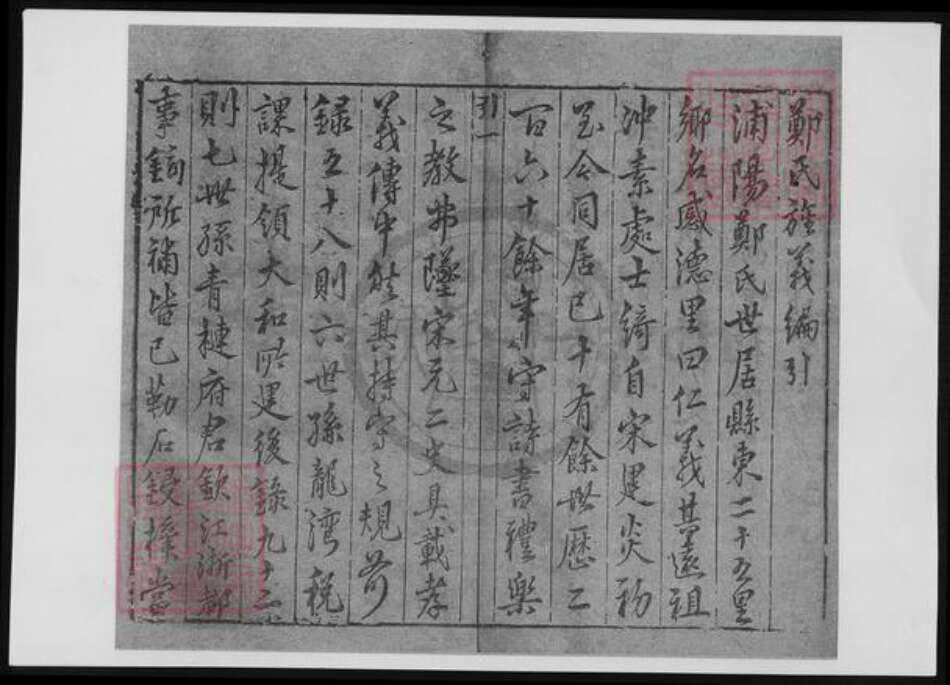 鄭氏旌義編引
浦陽鄭氏世居縣東二十五里
鄉名感德里曰仁義其遠祖
沖素處士綺自宋建炎初
至今同居已十有餘世歷二
百六十餘年守詩書禮樂
引一
之教弗墜宋元二史具載孝
義傳中然其持守之規前
錄五十八則六世孫龍灣稅
課提領大和所建後錄九十二
則七世孫青槤府君欽江浙都
事鉉所補皆已勒石鋟梓當